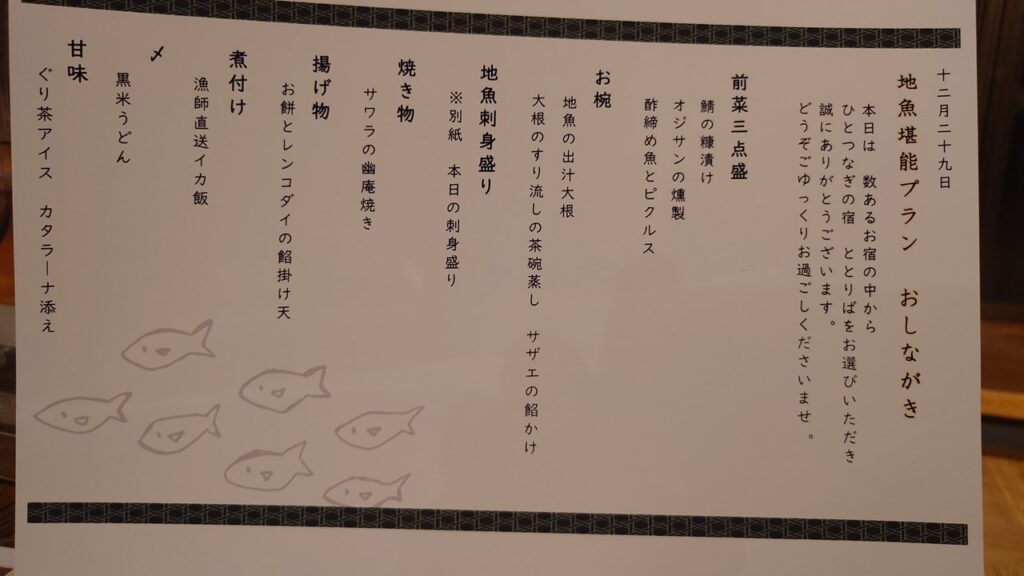 十二月二十九日
地魚堪能プラン　おしながき
本日は　数あるお宿の中から
ひとつなぎの宿　ととりばをお選びいただき
誠にありがとうございます。
どうぞごゆっくりお過ごしくださいませ。
前菜三点盛
鯖の糠漬け
オジサンの燻製
酢締め魚とピクルス
お椀
地魚の出汁大根
大根のすり流しの茶碗蒸し　サザエの餡かけ
地魚刺身盛り
※別紙　本日の刺身盛り
焼き物
サワラの幽庵焼き
揚げ物
お餅とレンコダイの餡掛け天
煮付け
漁師直送イカ飯
〆
黒米うどん
甘味
ぐり茶アイス　カタラーナ添え